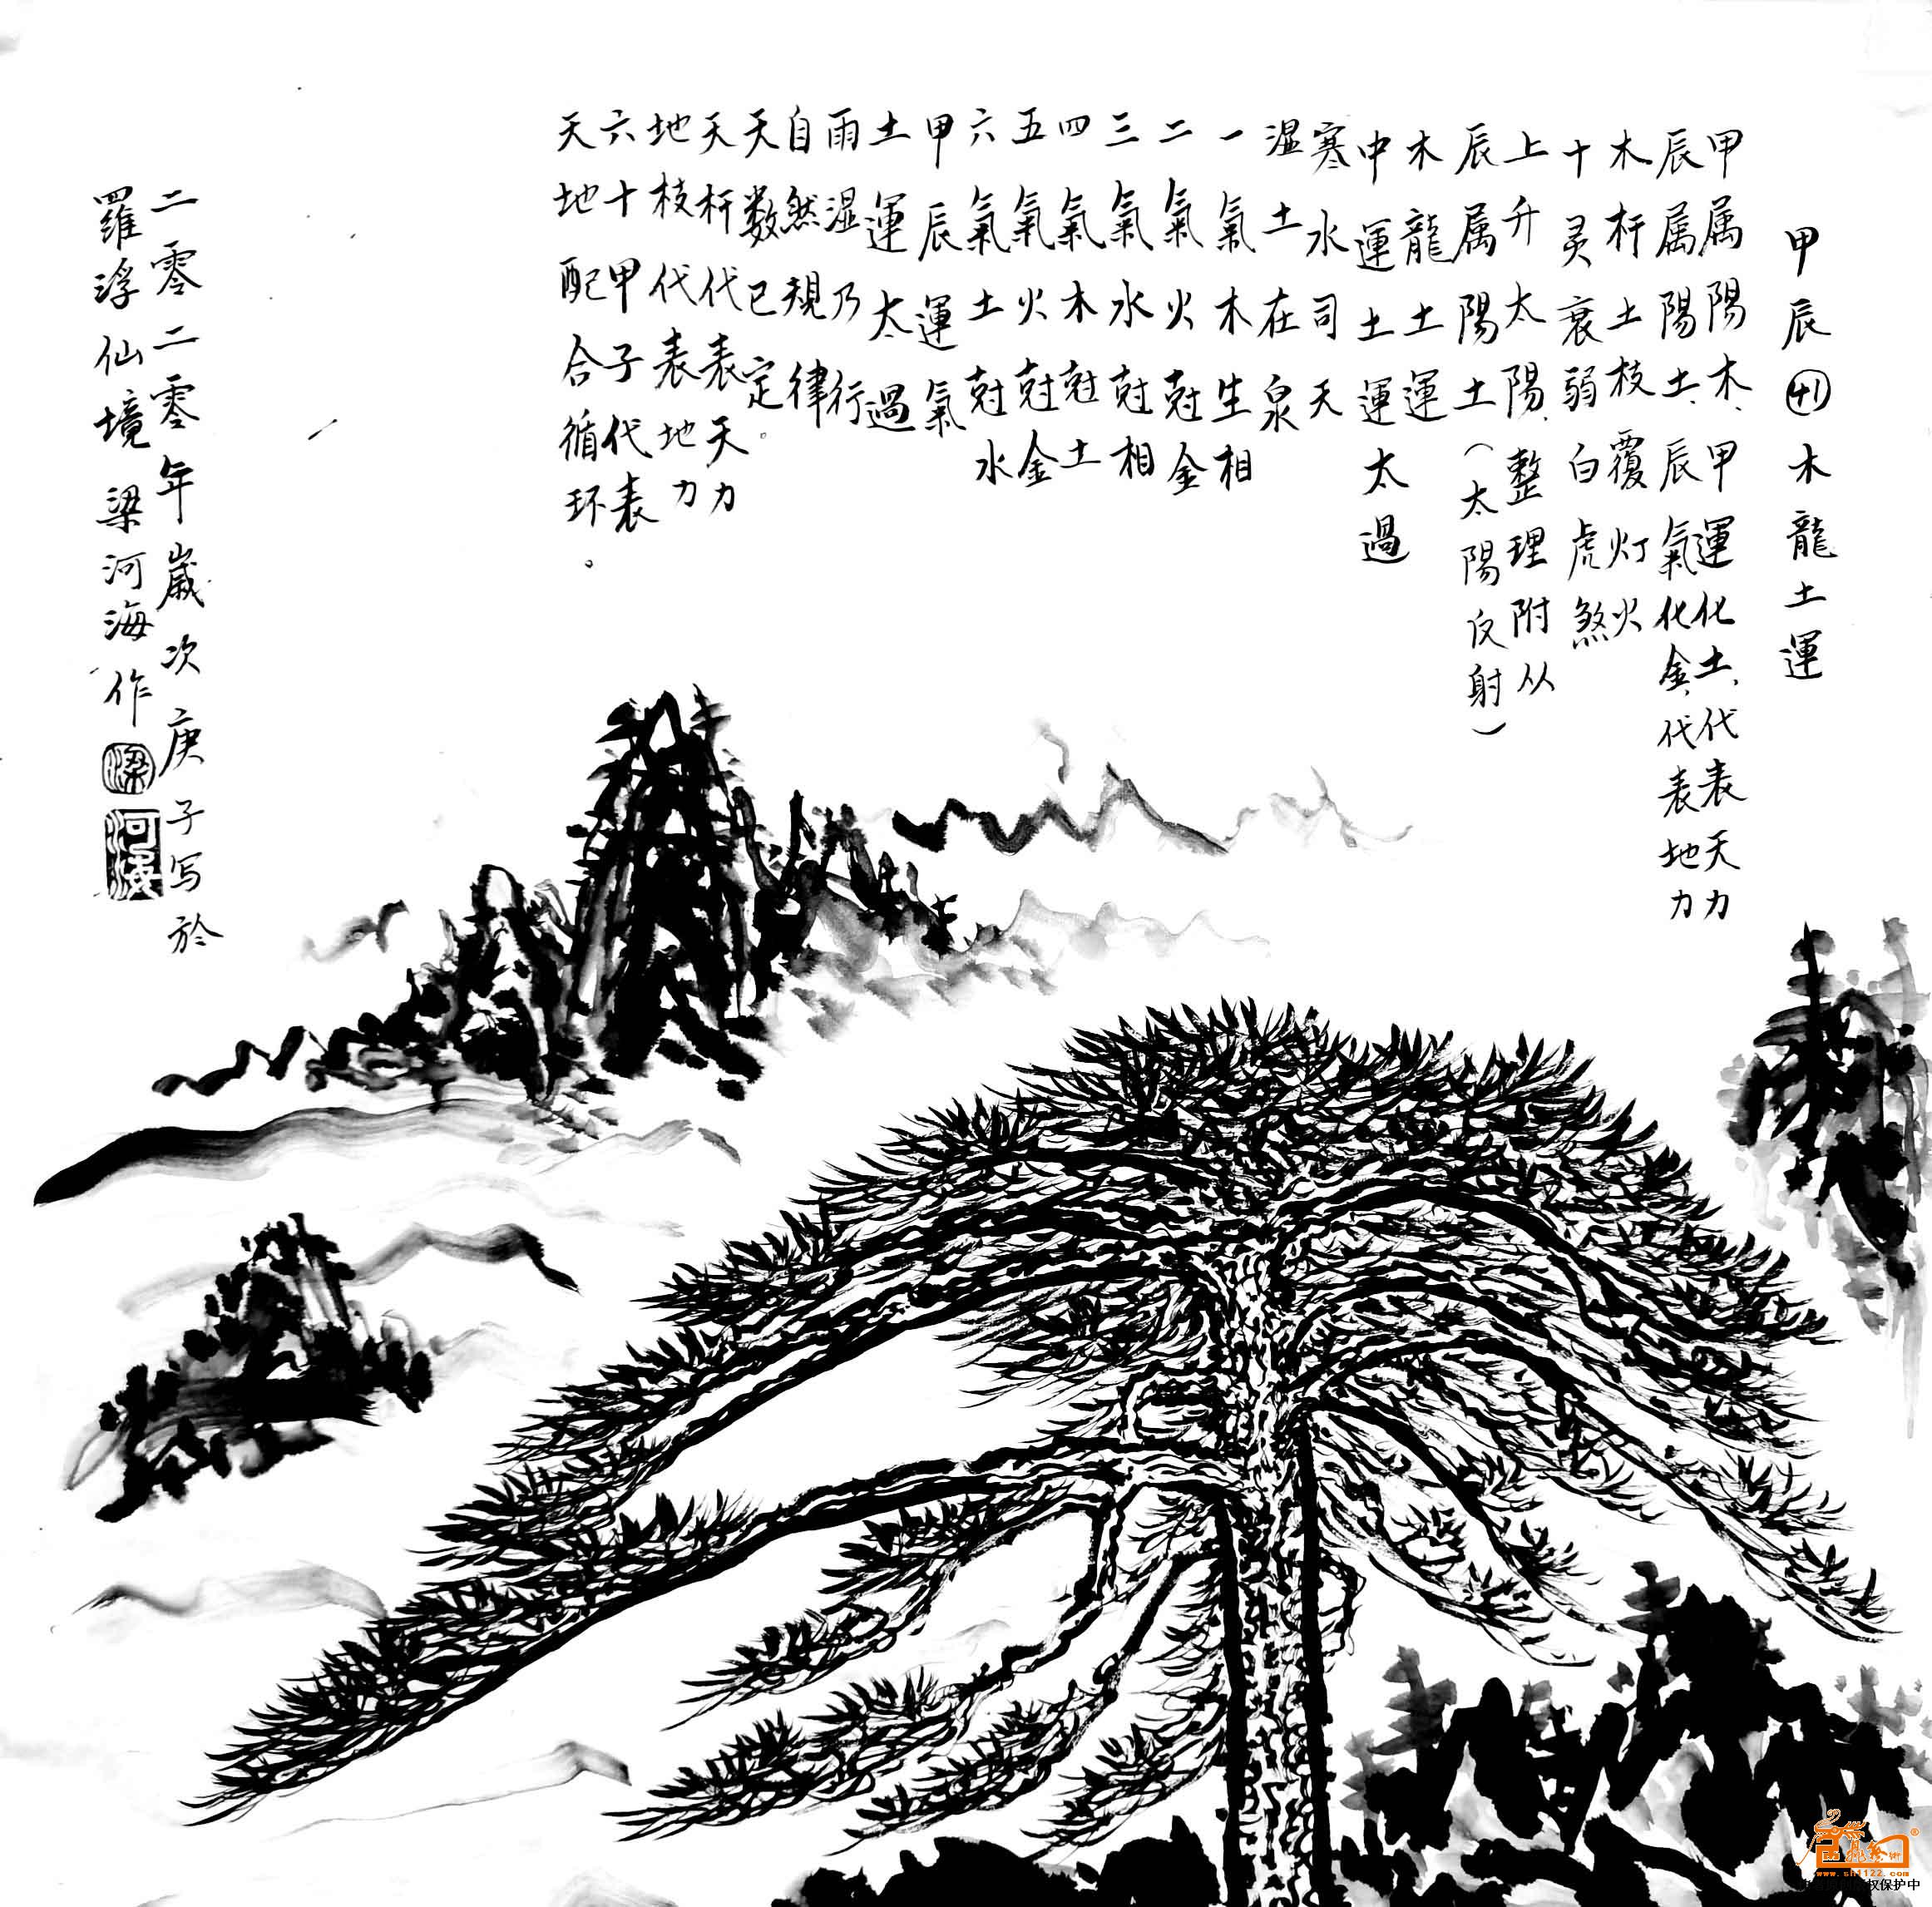 甲辰㊶木龍土運
甲属陽木、甲運化土、代表天力
辰属陽土、辰氣化金、代表地力
木杆土枝覆灯火
十灵衰弱白虎煞
上升太陽、整理附从
辰属陽土(太陽反射)
木龍土運
中運土運太過
寒水司天
湿土在泉
一氣木生相
二氣火尅金
三氣水尅相
四氣木尅土
五氣火尅金
六氣土尅水
甲辰運氣
土運太過
雨湿乃行
自然規律
天数已定。
天杆代表天力
地枝代表地力
六十甲子代表
天地配合循环。
二零二零年歲次庚子写於
羅浮仙境梁河海作
梁
河海
www.sh1122.com
权保护中